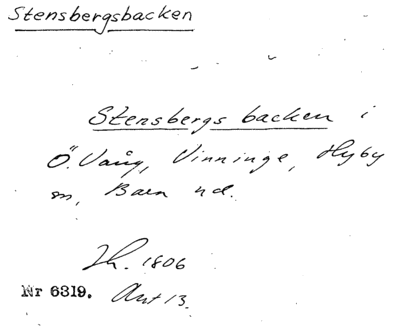 Stensbergsbacken
Stensbergs backen i
Ö. Vång, Vinninge, Hyby
sn, Bara hd.
Jh. 1806
Nr 6319. Akt 13.